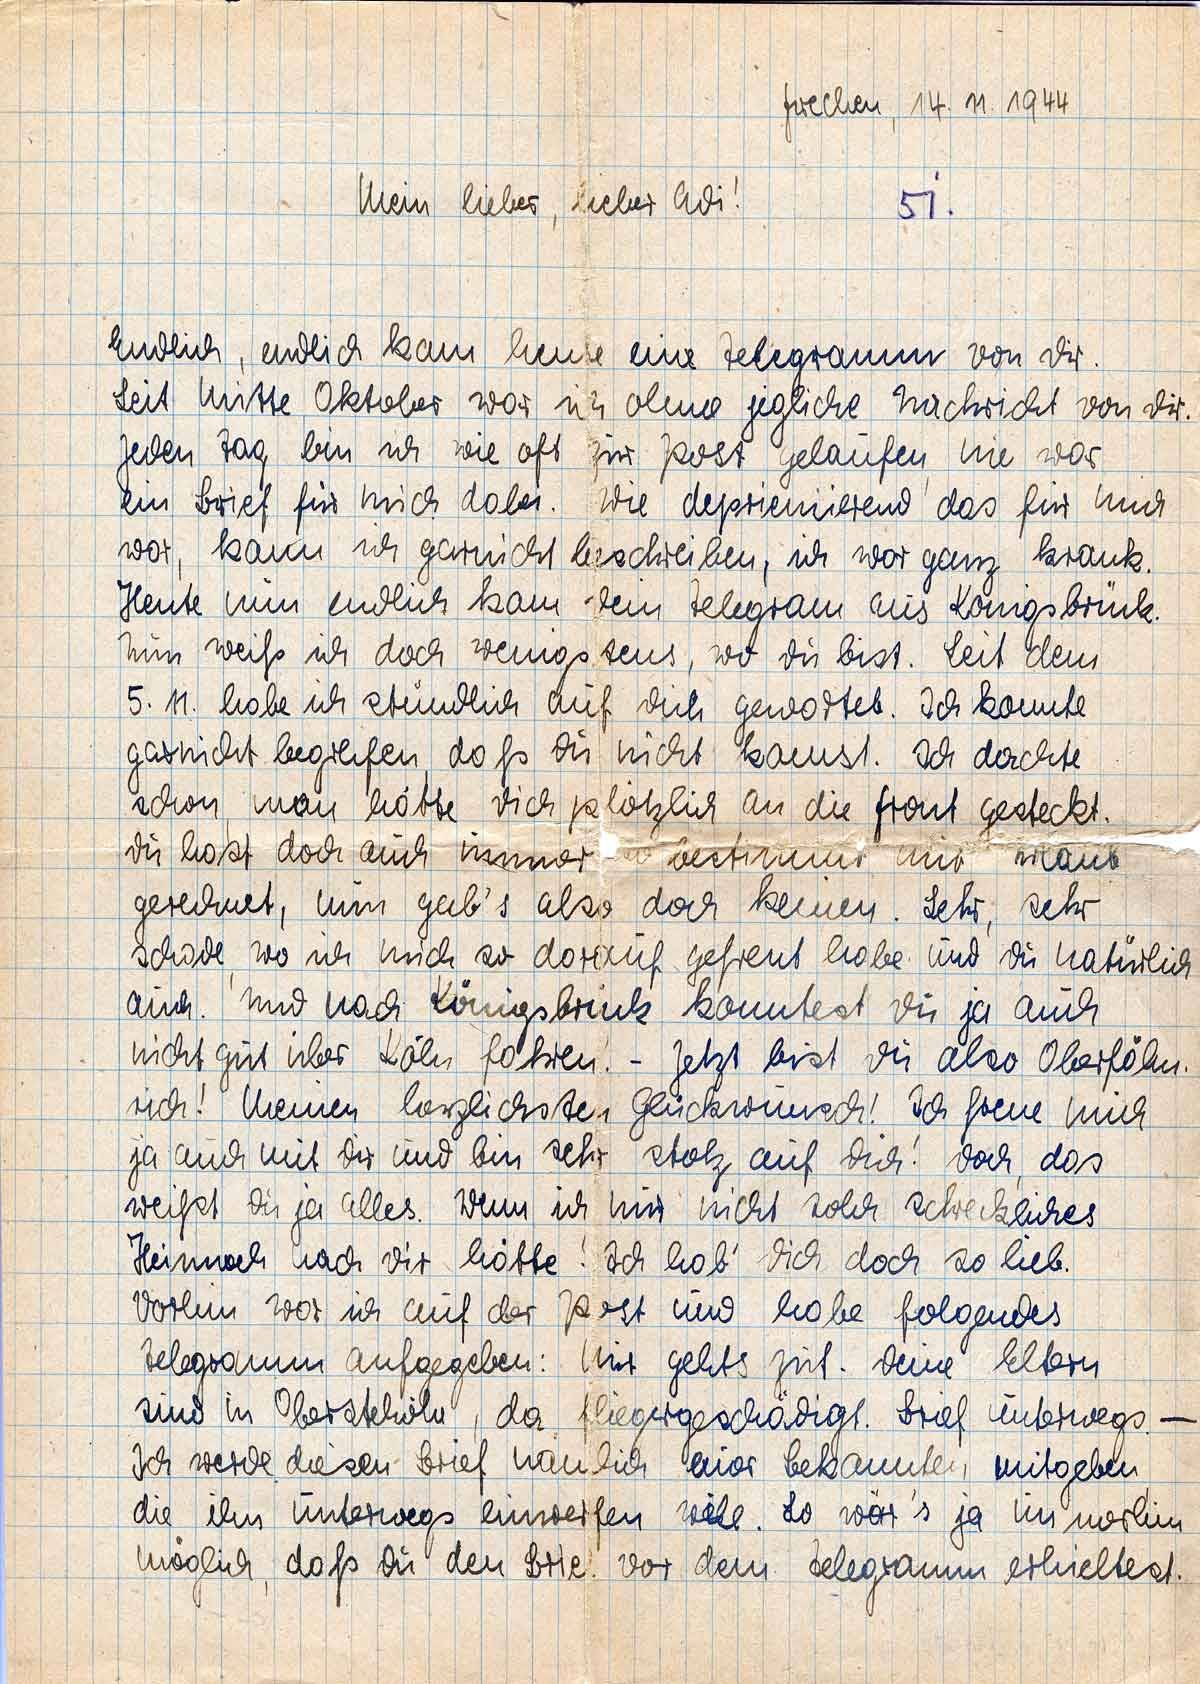 Frechen, 14. 11. 1944
Mein lieber, lieber Adi!
51.
Endlich, endlich kam heute eine Telegramm von Dir.
Seit Mitte Oktober war ich ohne jegliche Nachricht von Dir.
Jeden Tag bin ich wie oft zur Post gelaufen, nie war
ein Brief für mich dabei. Wie deprimierend das für mich
war, kann ich garnicht beschreiben, ich war ganz krank.
Heute nun endlich kam dein Telegram aus Königsbrück.
Nun weiß ich doch wenigstens, wo du bist. Seit dem
5. 11. habe ich stündlich auf dich gewartet. Ich konnte
garnicht begreifen, daß du nicht kamst. Ich dachte
schon, man hätte dich plötzlich an die Front gesteckt.
Du hast doch auch immer so bestimmt mit Urlaub
gerechnet, nun gab's also doch keinen. Sehr, sehr
schade, wo ich mich so darauf gefreut habe und du natürlich
auch. Und nach Königsbrück konntest du ja auch
nicht gut über Köln fahren. - Jetzt bist du also Oberfähn-
rich! Meinen herzlichsten Glückwunsch! Ich freue mich
ja auch mit dir und bin sehr stolz auf dich! Doch das
weißt du ja alles. Wenn ich nur nicht solch schreckliches
Heimweh nach dir hätte! Ich hab' dich doch so lieb.
Vorhin war ich auf der Post und habe folgendes
Telegramm aufgegeben: Mir gehts gut. Deine Eltern
sind in, da fliegergeschädigt. Brief unterwegs. —
Ich werde diesen Brief nämlich einer Bekannten mitgeben,
die ihn unterwegs einwerfen will. So wär's ja immerhin
möglich, daß du den Brief vor dem Telegramm erhieltest.